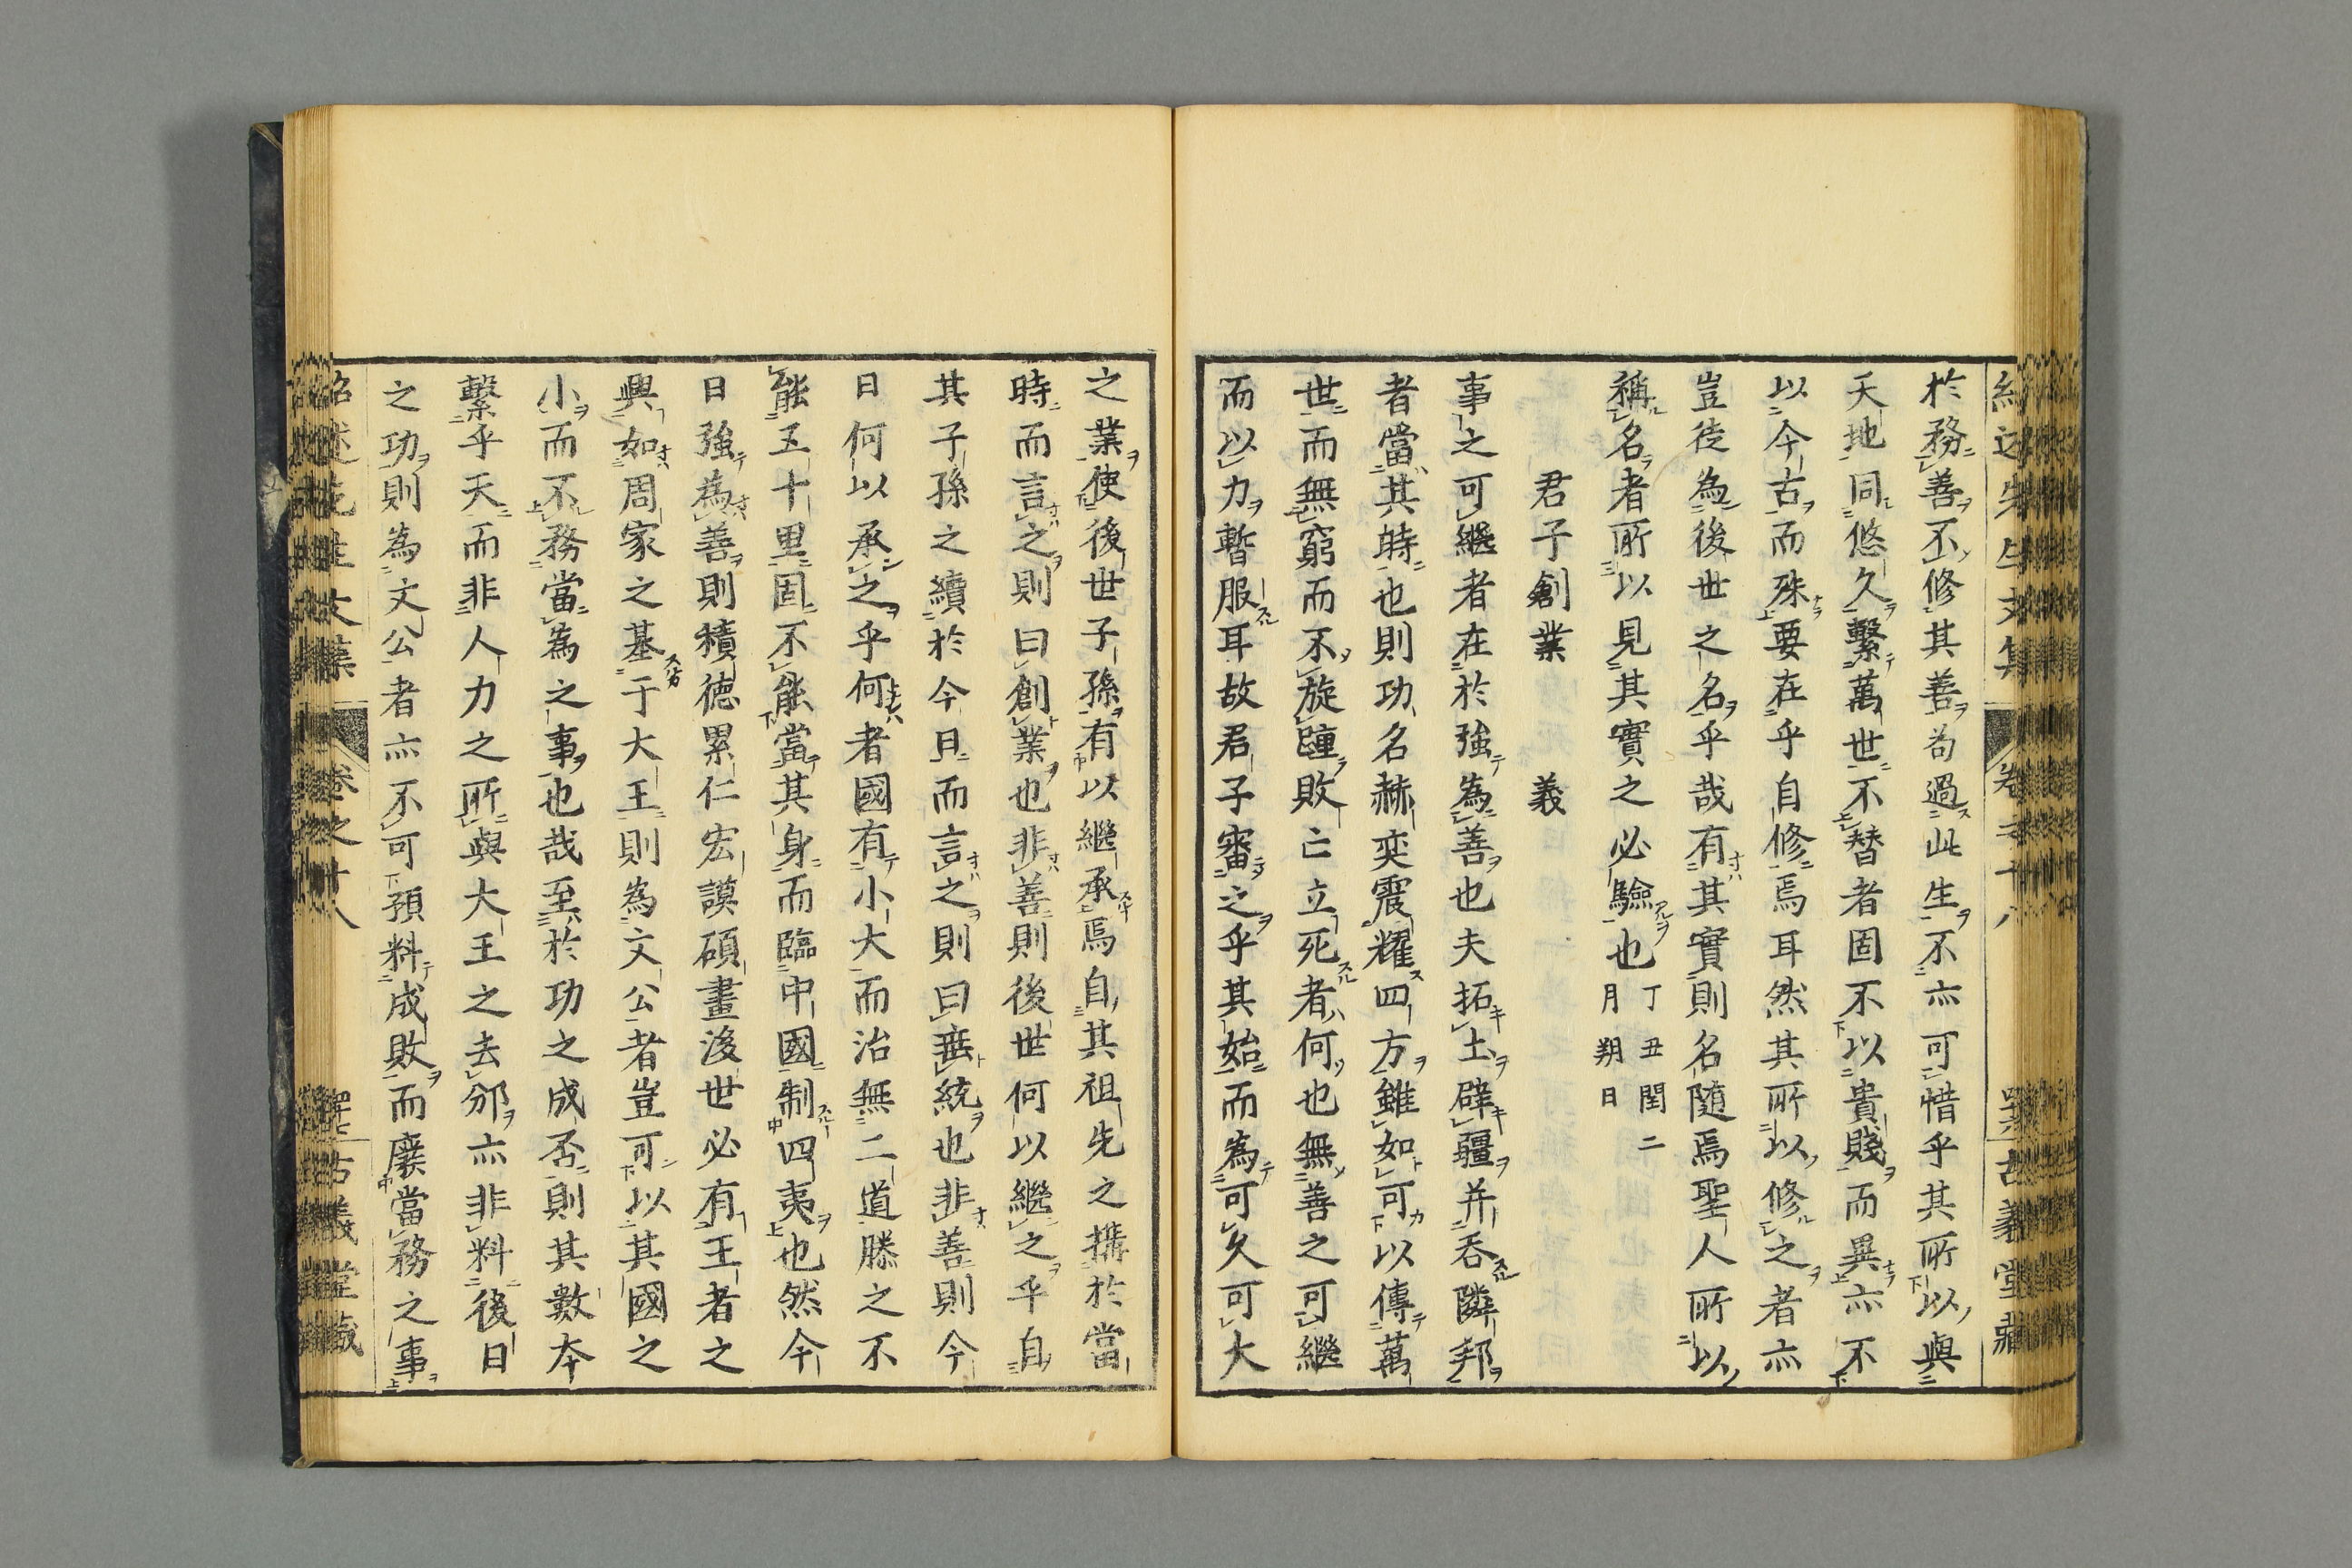 紹述先生文集 卷之十八 古義堂藏
於務善不修其善苟過此生不亦可惜乎其所以與
天地同悠久繫萬世不替者固不以貴賤而異亦不
以今古而殊要在乎自修焉耳然其所以修之者亦
豈徒為後世之名乎哉有其實則名隨焉聖人所以
稱名者所以見其實之必驗也丁丑閏二月朔日
君子創業義
事之可繼者在於強為善也夫拓土辟疆并吞隣邦
者當其時也則功名赫奕震耀四方雖如可以傳萬
世而無窮而不旋踵敗亡立死者何也無善之可繼
而以力暫服耳故君子審之乎其始而為可久可大
之業使後世子孫有以繼承焉自其祖先之搆於當
時而言之則曰創業也非善則後世何以繼之乎自
其子孫之續於今日而言之則曰垂統也非善則今
日何以承之乎何者國有小大而治無二道滕之不
能五十里固不能當其身而臨中國制四夷也然今
日強為善則積德累仁宏謨碩畫後世必有王者之
興如周家之基于大王則為文公者豈可以其國之
小而不務當為之事也哉至於功之成否則其數本
繫乎天而非人力之所與大王之去邠亦非料後日
之功則為文公者亦不可預料成敗而廢當務之事
紹述先生文集 卷之十八 古義堂藏